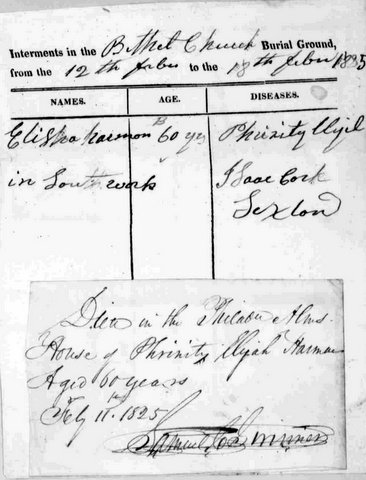 Interments in the Bethel Church Burial Ground,
from the 12th febu to the 18th febu 1825
NAMES. AGE. DISEASES.
Elisha harmon B 60 yrs Phrinity
in Southworks Isaac Cork
Sexton
Died in the Philada Alms
House of Phrinity Elijah Harman
Aged 60 years
Feby 11th 1825
Samuel